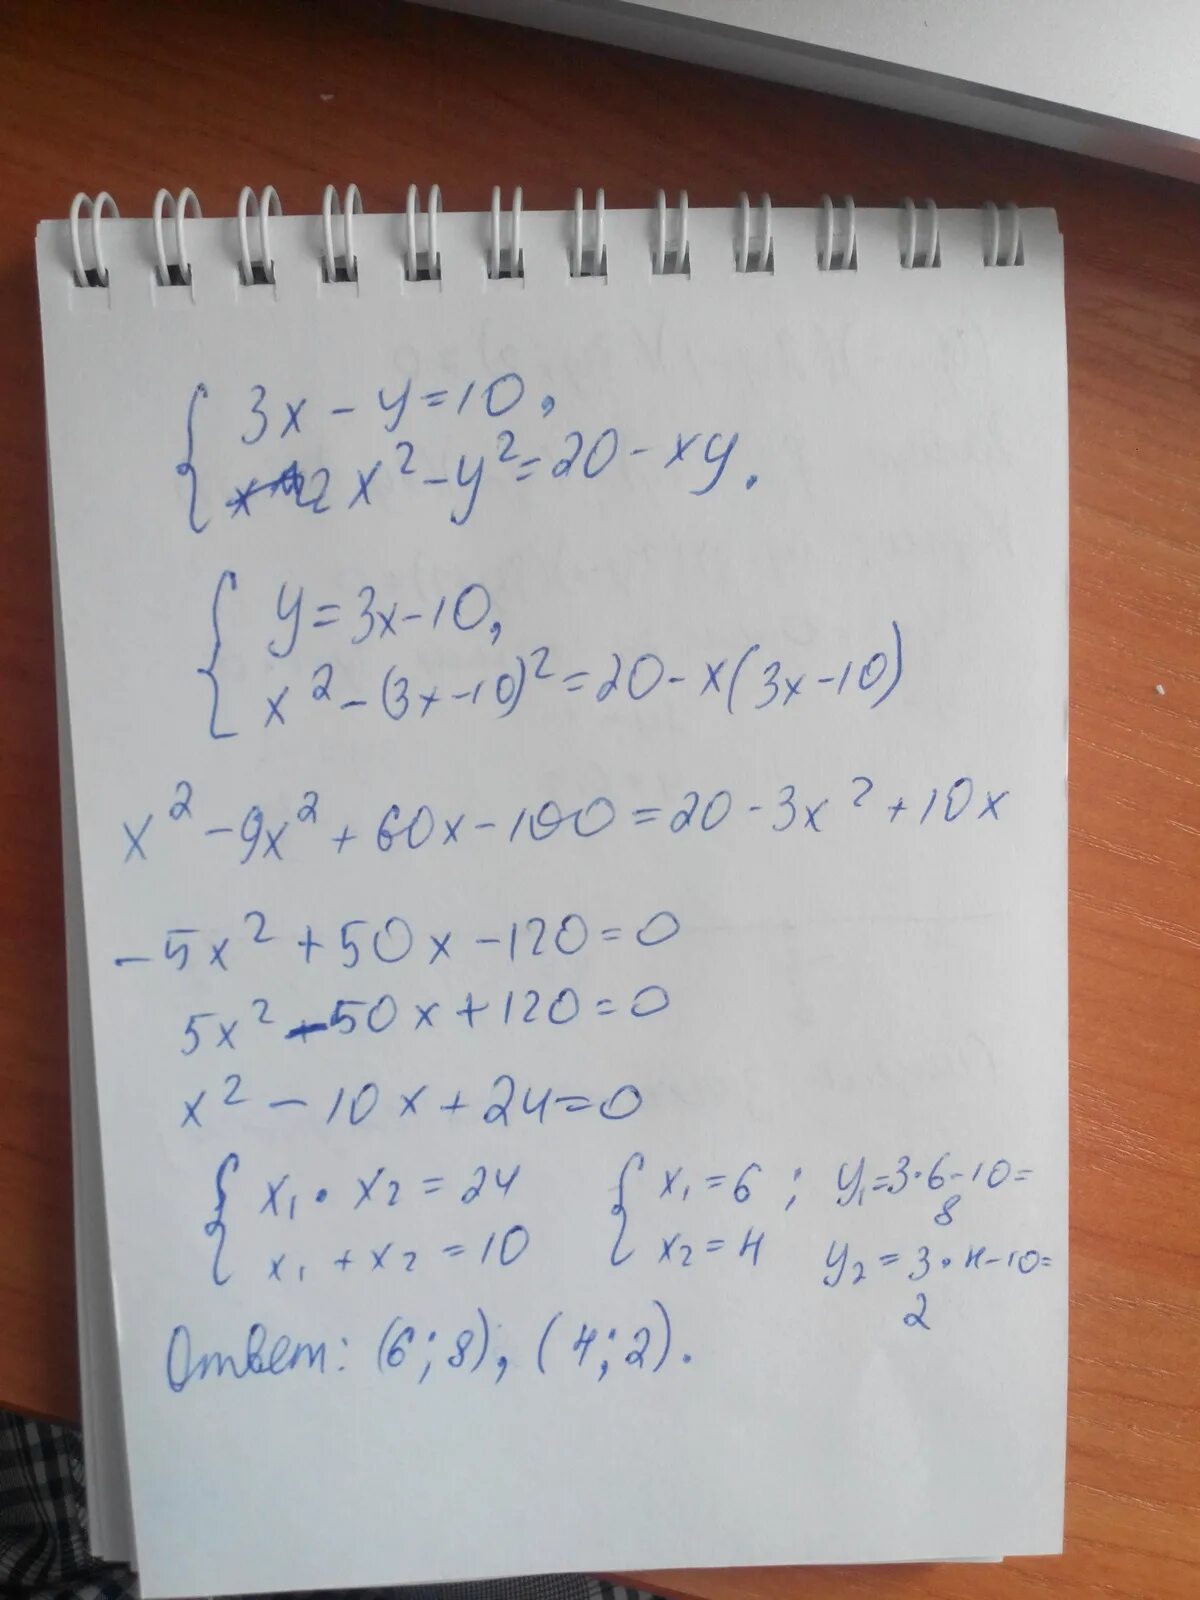 3x - y = 10,
x² - y² = 20 - xy.
y = 3x - 10,
x² - (3x - 10)² = 20 - x(3x - 10)
x² - 9x² + 60x - 100 = 20 - 3x² + 10x
-5x² + 50x - 120 = 0
5x² - 50x + 120 = 0
x² - 10x + 24 = 0
x₁ · x₂ = 24 x₁ = 6 ; y₁ = 3 · 6 - 10 = 8
x₁ + x₂ = 10 x₂ = 4 y₂ = 3 · 4 - 10 = 2
Ответ: (6; 8), (4; 2).